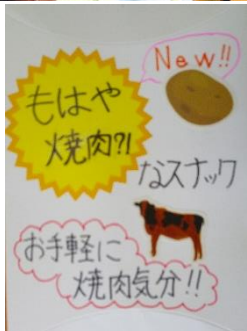 New!!
もはや
焼肉?!
なスナック
お手軽に
焼肉気分!!